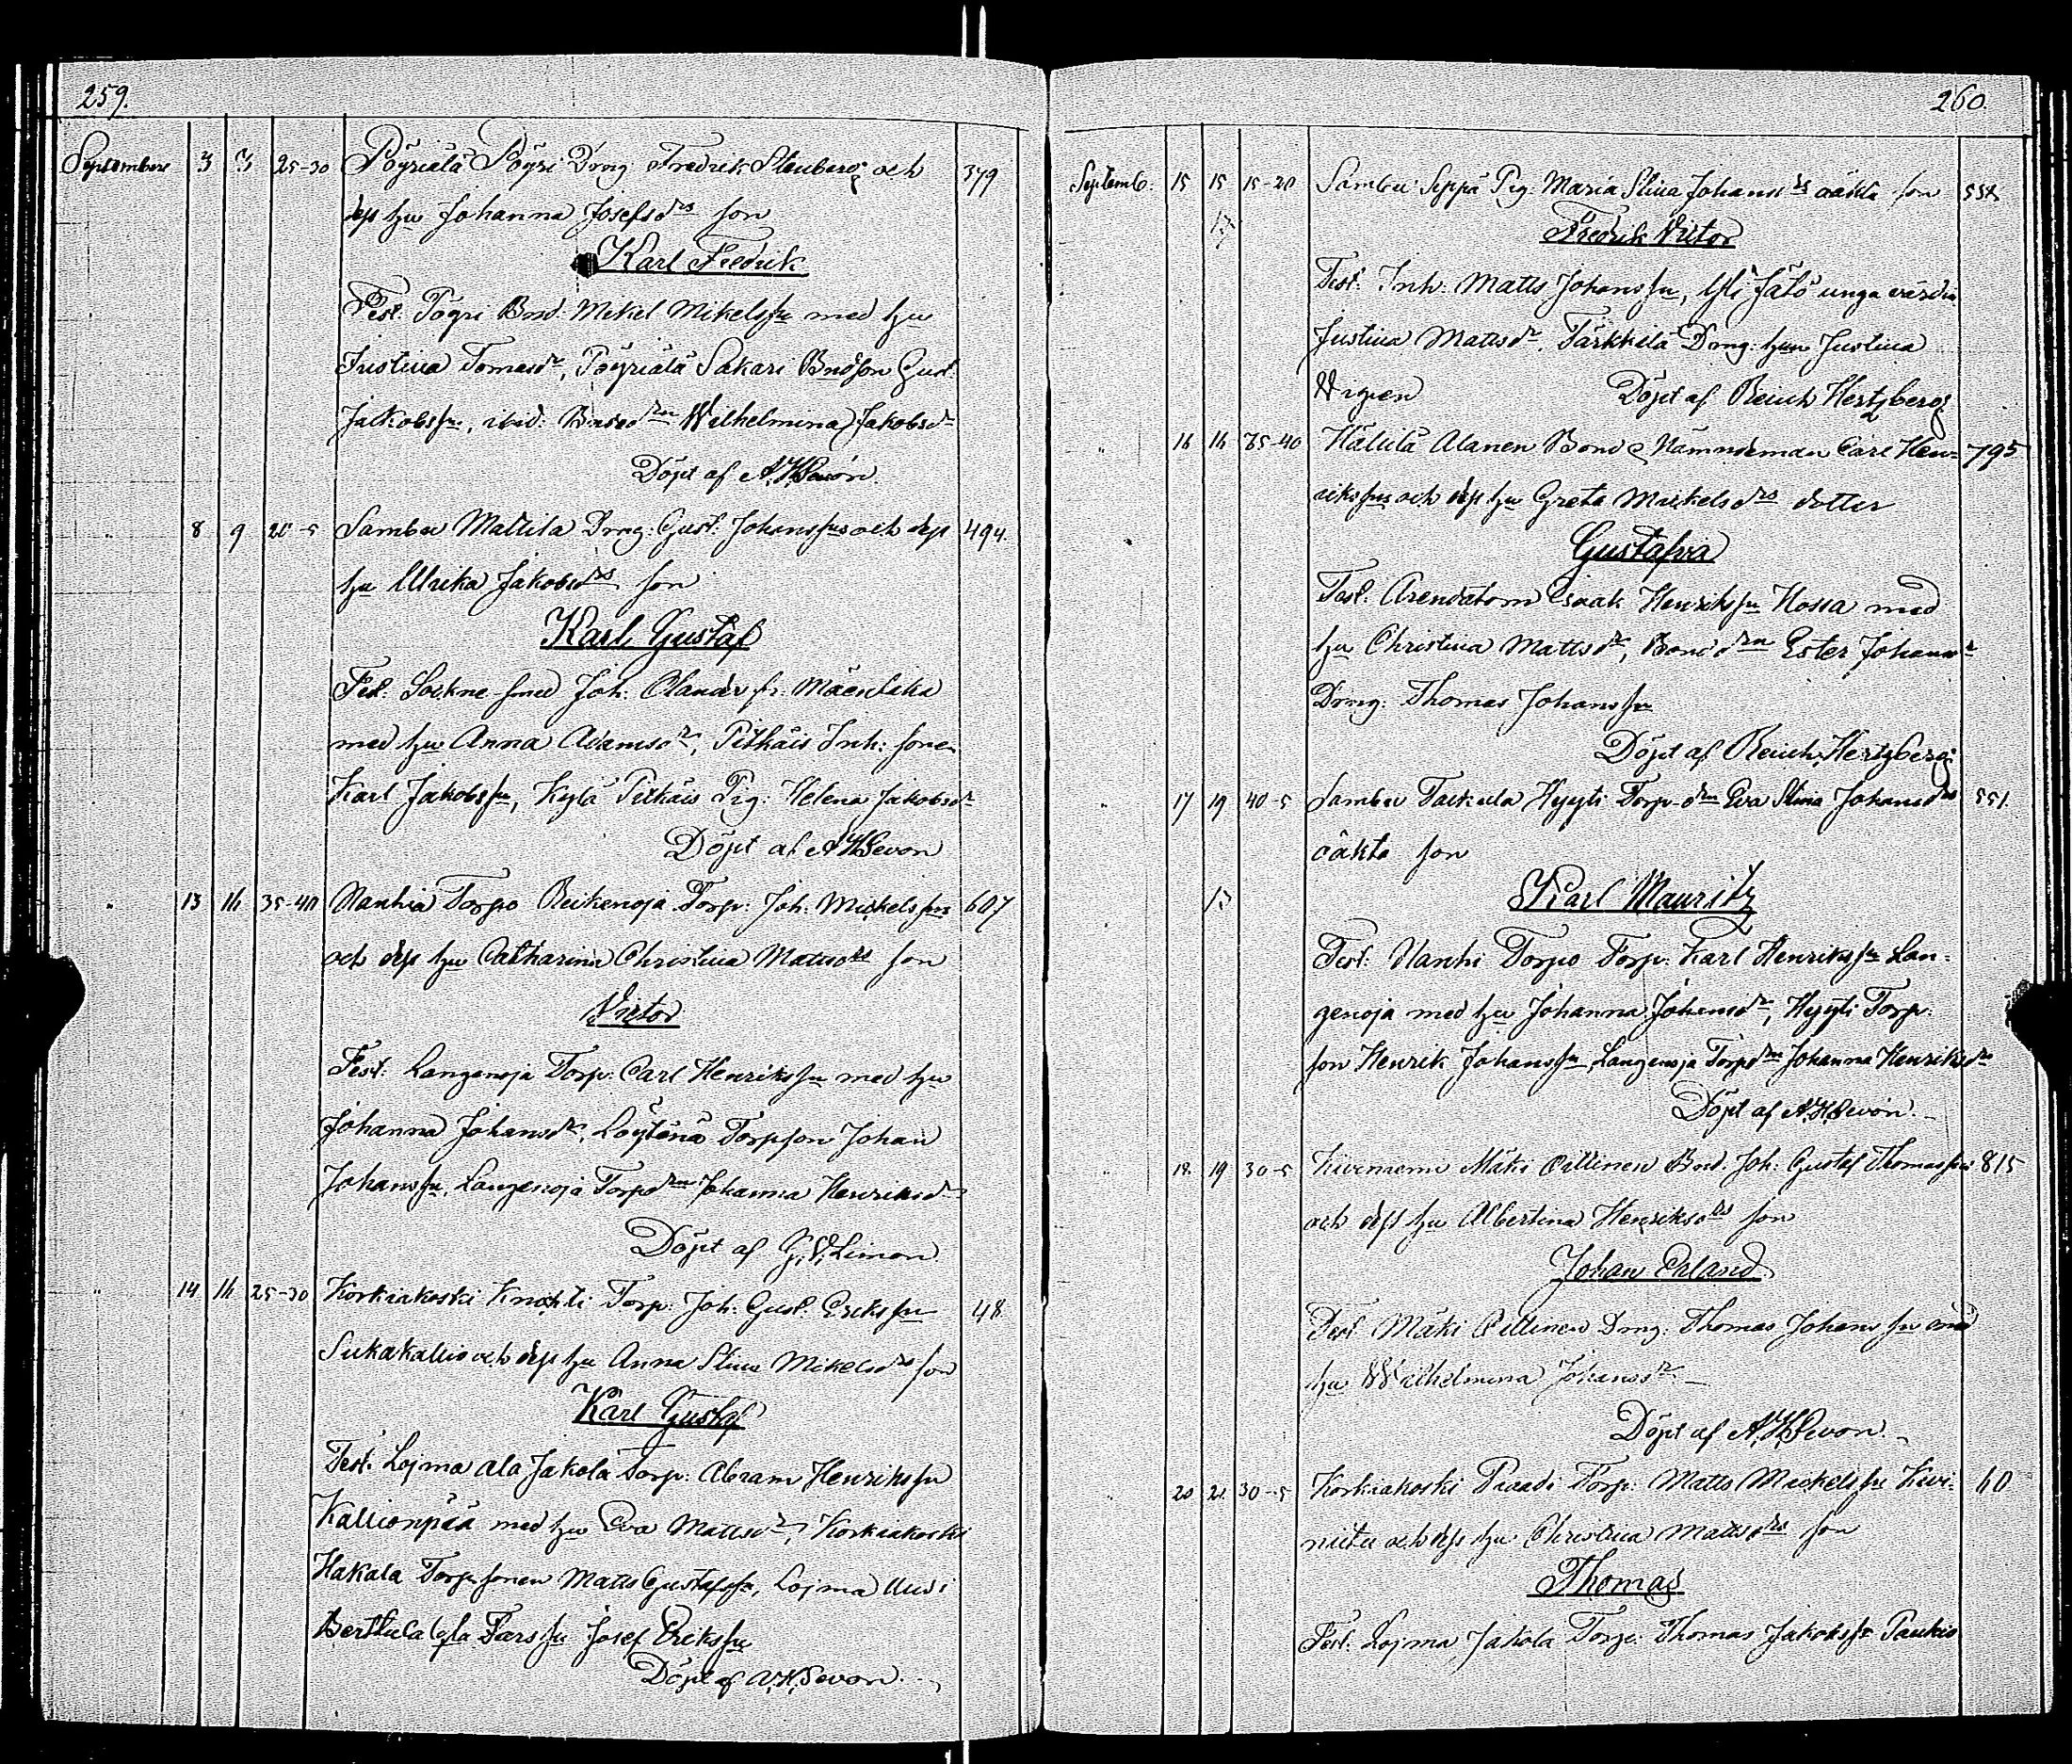 259.
Septembere 3 3 25-30 Pöyriälä Pöyri Drng Fredrik Stenberg och 379
dess hu Johanna Josefsdrs son
Karl Fredrik
Test. Pöyri Bnd: Mikel Mikelssn med hu
Justina Tomasdr, Pöyriälä Sakari Bndson Gust.
Jakobssn, ibid: Wilhelmina Jakobsdr
Döpt af A.H.Sevon.
" 8 9 20-5 Sambu Mattila Drng: Gust. Johanssns och dess 494.
hu Ulrika Jakobsdrs son
Karl Gustaf
Test. Sockne smed Joh: Olander fr.
med hu Anna Adamsdr, Pitkäis Inh: sonen
Karl Jakobssn, Kylä Pitkäis Pig: Helena Jakobsdr
Döpt af A H Sevon
" 13 16 35-40 Torpo Torp: Joh: Mickelssns 607
och dess hu Catharina Christina Mattsdrs son
Victor
Test: Langenoja Torp: Carl Henrikssn med hu
Johanna Johansdr, Löytänä Torpson Johan
Johanssn, Langenoja Torpdrn Johanna Henriksdr
Döpt af G.V.Limon
" 14 16 25-30 Korkiakoski Knaapti Torp: Joh: Gust. Erikssn 48
Sukakallio och dess hu Anna Stina Mikelsdrs son
Karl Gustaf
Test. Lojma ala Jakola Torp: Abram Henrikssn
Kallionpää med hu Eva Mattsdr, Korkiakoski
Hakala Torp sonen Matts Gustafssn, Lojma Uusi
Berttula Josef Erikssn
Döpt af A.H.Sevon.
260.
Septemb: 15 15 15-20 Sambu Seppä Pig: Maria Stina Johansdrs oäkta son
17
Fredrik Victor
Test. Inh: Matts Johanssn, Yli Jälö unga värdin
Justina Mattsdr, Tärkkilä Drng: hun Justina
Wigren Döpt af Reinh Hertzberg
" 16 16 35-40 Hällilä Alanen Bond o Nämndeman Carl Hen- 795
rikssns och dess hu Greta Markelsdrs dotter
Gustafva
Test. Arendatorn Isaak Henrikssn Hossa med
hu Christina Mattsdr, Bonddrn Ester Johansdr
Drng: Thomas Johanssn
Döpt af Reinh. Hertzberg.
" 17 19 40-5 Sambu Hyyti Torp-drn Eva Stina Johansdrs 551.
oäkta son
13
Karl Mauritz
Test: Torpo Torp: Karl Henrikssn Lan-
genoja med hu Johanna Johansdr, Hyyti Torp:
son Henrik Johanssn, Langenoja Torpdrn Johanna Henriksdr
Döpt af A.H.Sevon.
" 18. 19 30-5 Kivenieni Mäki Pillinen Bnd. Joh: Gustaf Thomassns 815
och dess hu Albertina Henriksdrs son
Johan Erland
Test Mäki Pillinen Drng: Thomas Johanssn med
hu Wilhelmina Johansdr
Döpt af A.H.Sevon.
20 21 30-5 Korkiakoski Torp: Matts Mickelssns Kivi- 60
niitu och dess hu Christina Mattsdrs son
Thomas
Test. Lojma Jakola Torp: Thomas Jakobssn Paukio